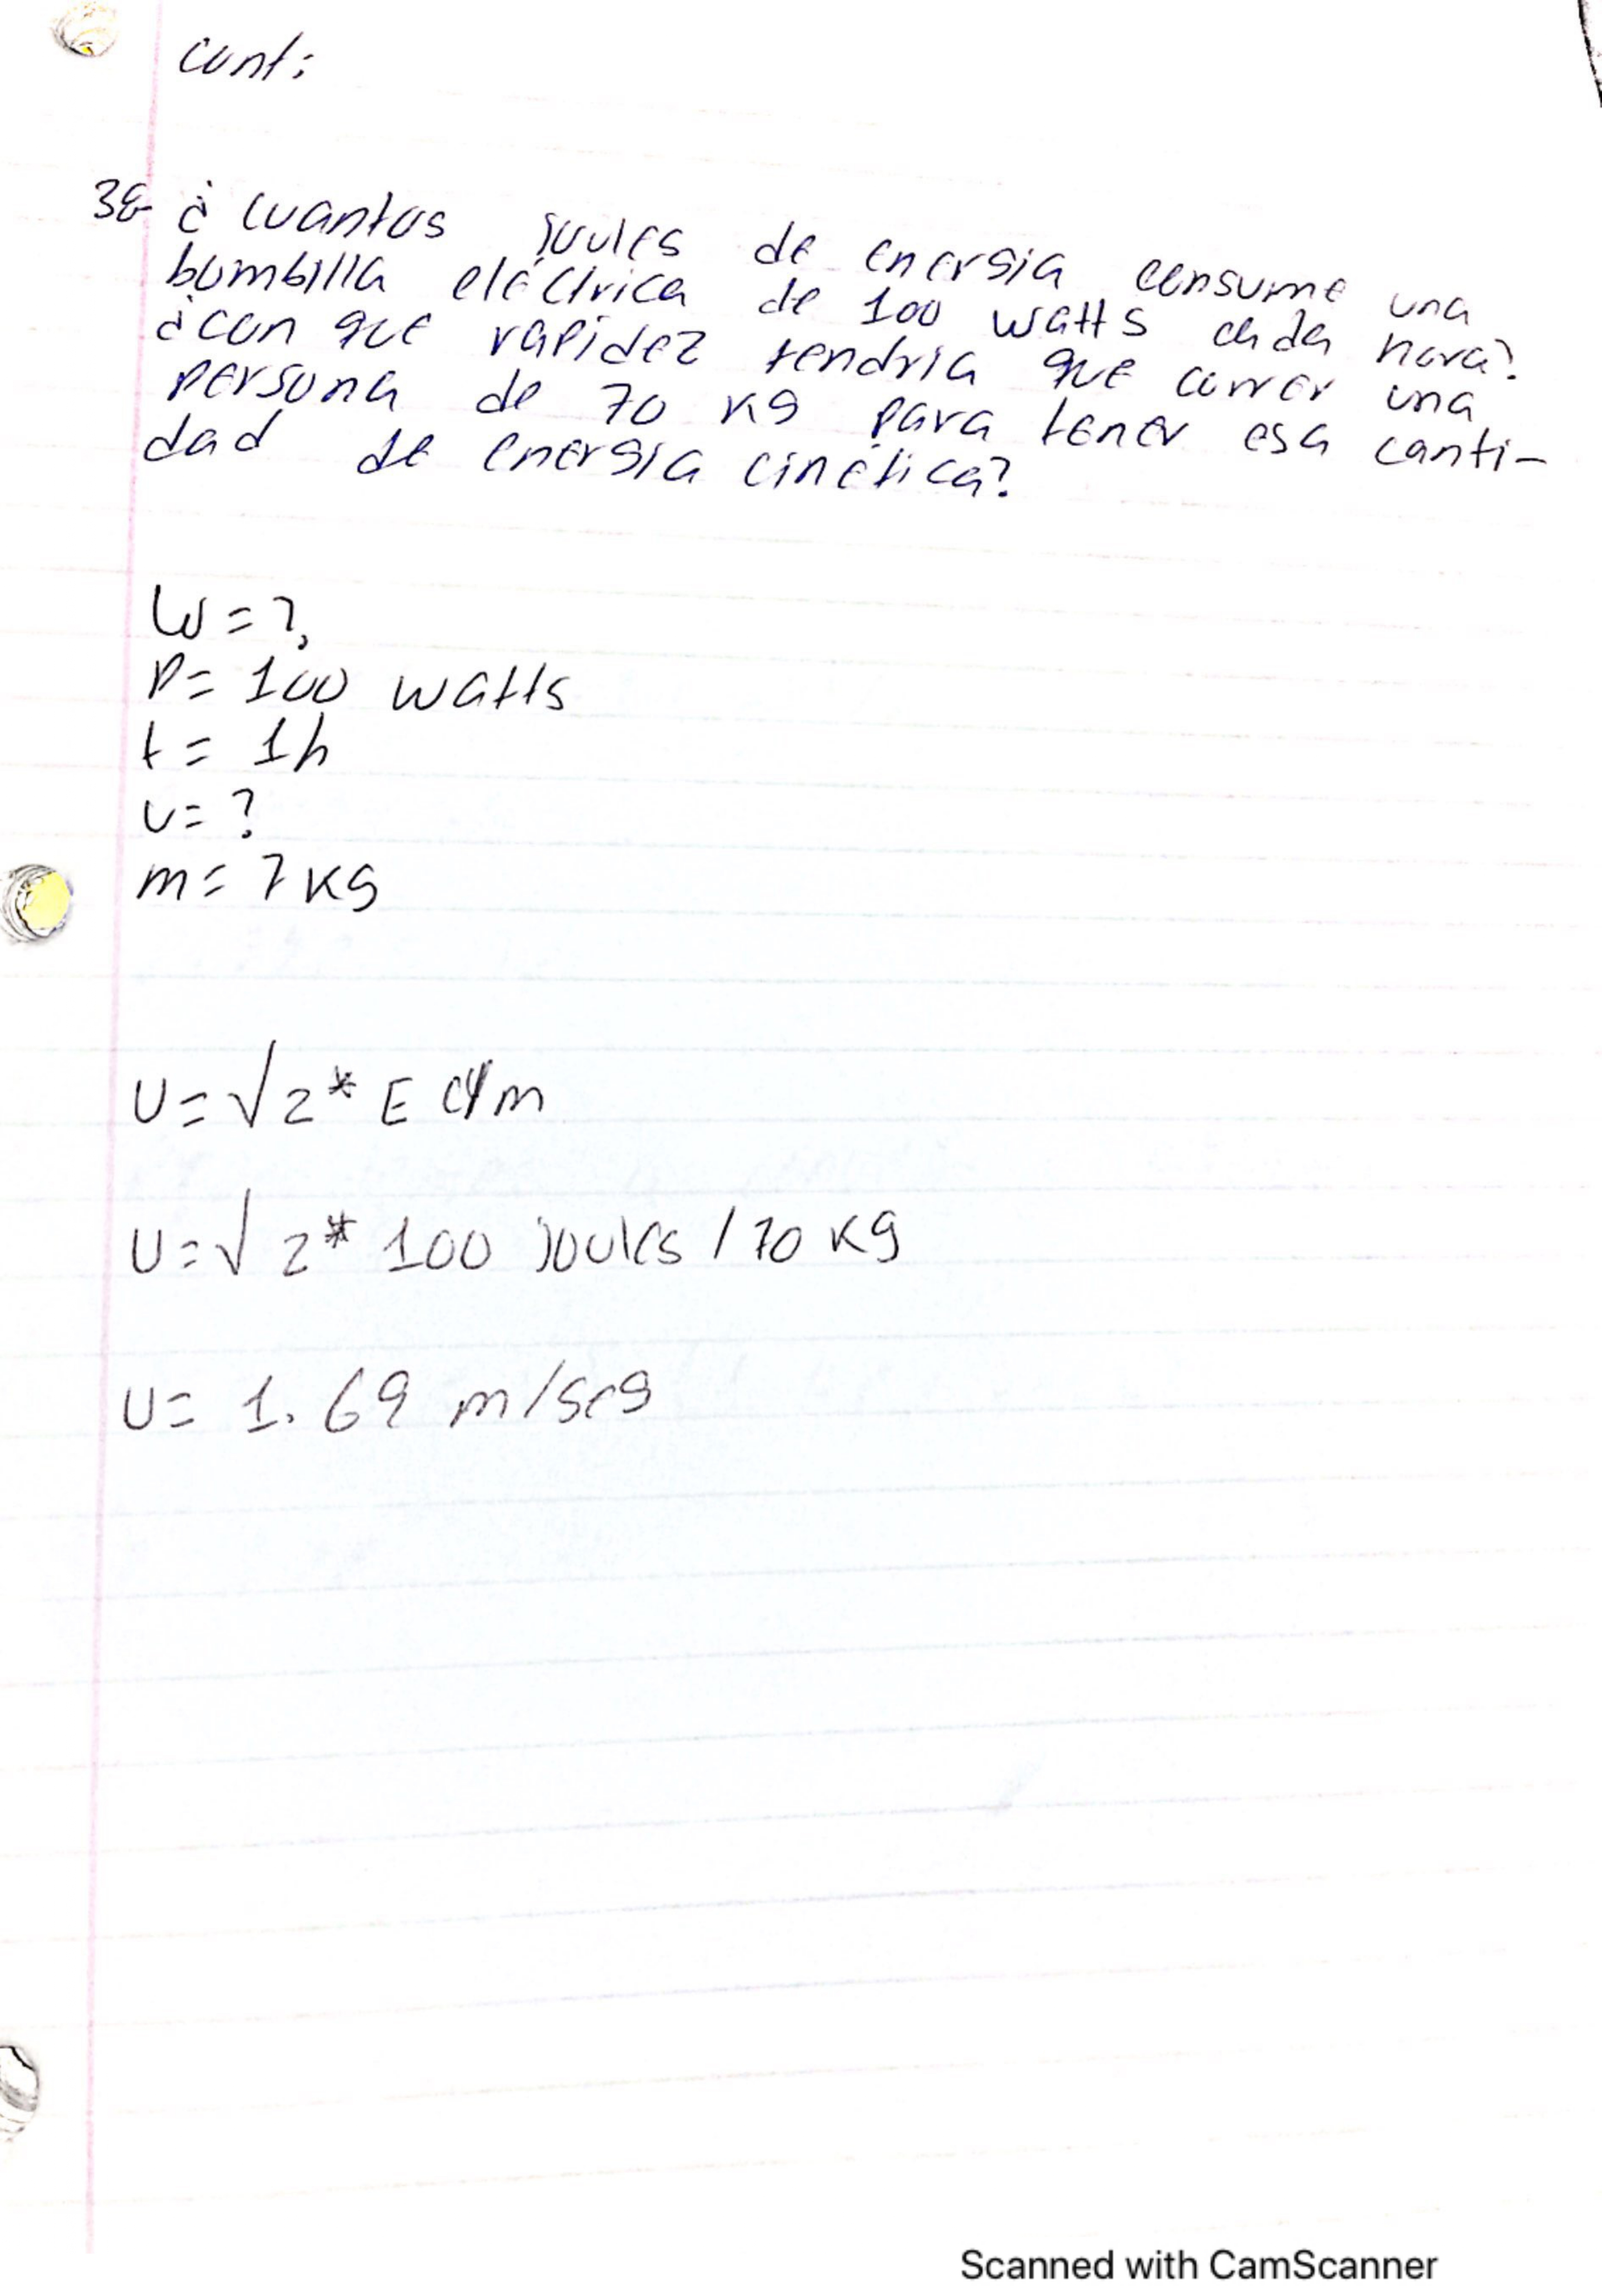 cont:
38- ¿ Cuantos joules de energia consume una
bombilla eléctrica de 100 watts cada hora?
¿con que rapidez tendria que correr una
persona de 70 kg para tener esa canti-
dad de energia cinética?
W = ?
P = 100 watts
t = 1h
v = ?
m = 7 kg
V = √2* E c/m
V = √2* 100 joules / 70 kg
V = 1.69 m/seg
Scanned with CamScanner